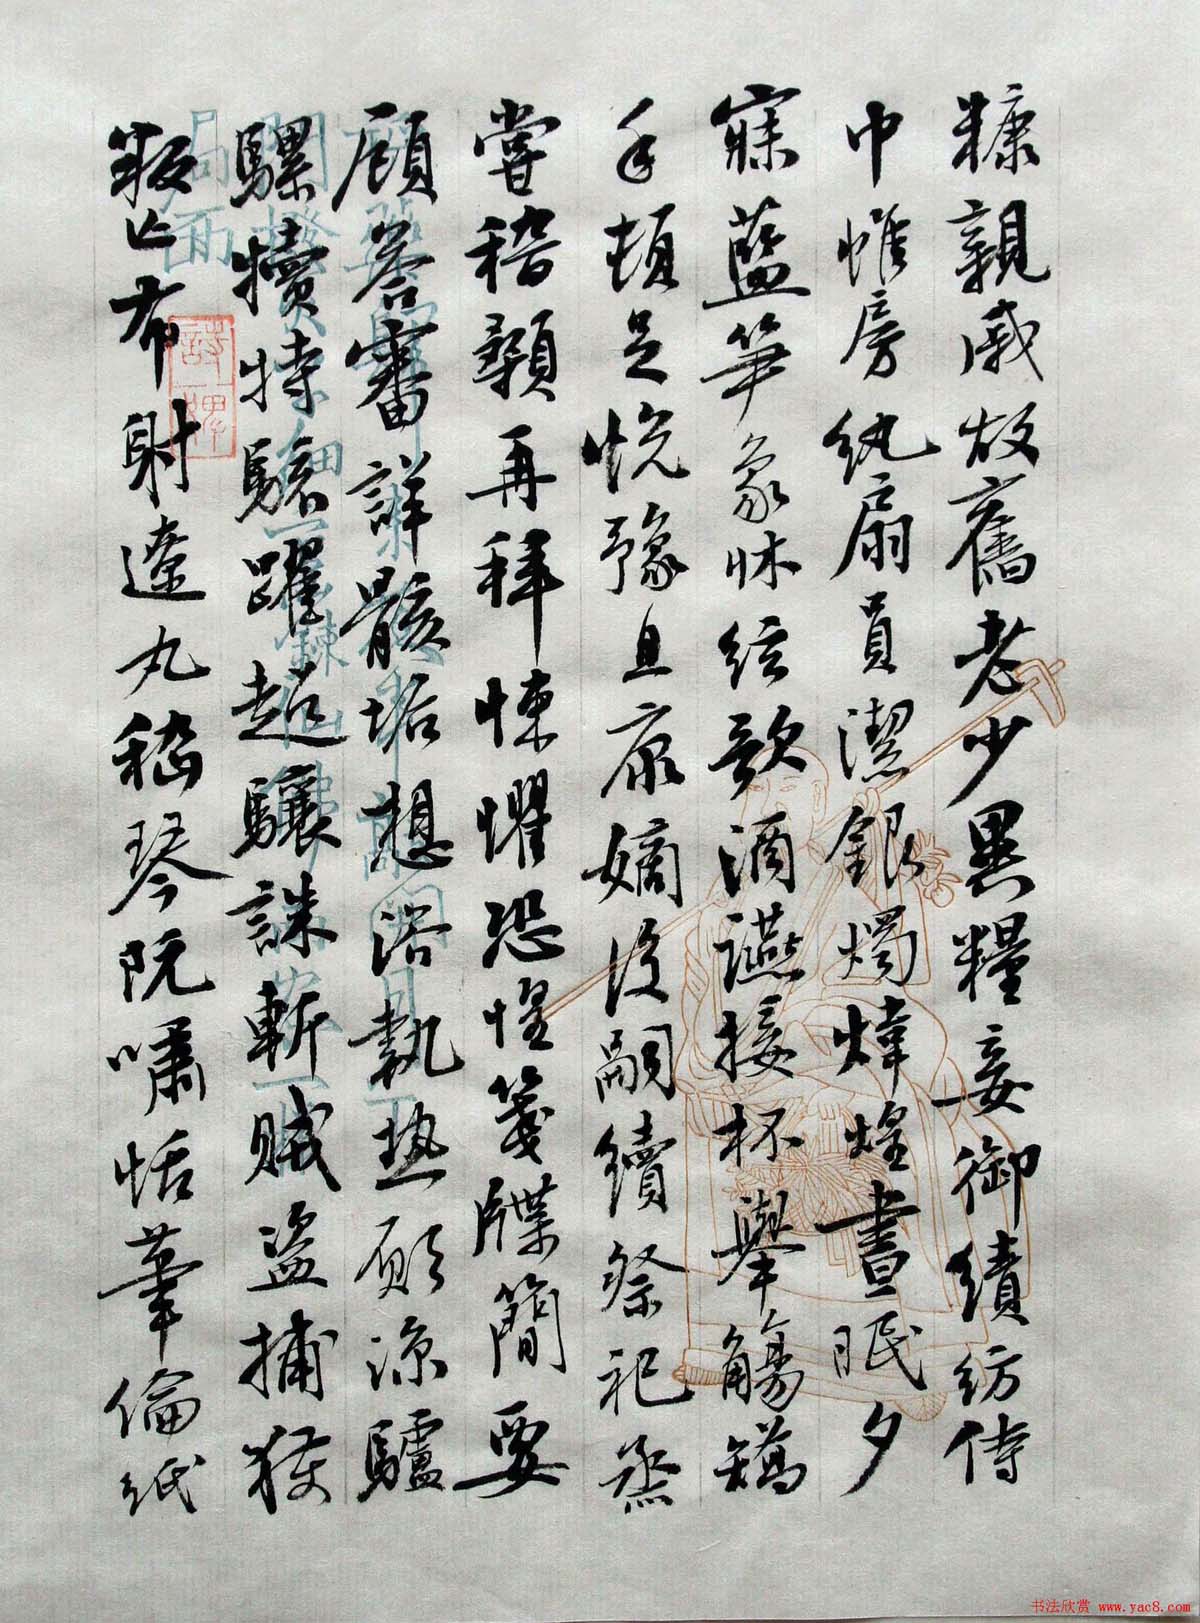 糠親戚故舊老少異糧妾御績紡侍
巾帷房紈扇員潔銀燭煒煌晝眠夕
寐藍笋象床絃歌酒讌接杯舉觴矯
手頓足悅豫且康嫡後嗣續祭祀烝
嘗稽顙再拜悚懼恐惶箋牒簡要
顧答審詳骸垢想浴執熱願涼驢
騾犢特駭躍超驤誅斬賊盜捕獲
叛亡布射遼丸嵇琴阮嘯恬筆倫紙
书法欣赏 www.yac8.com